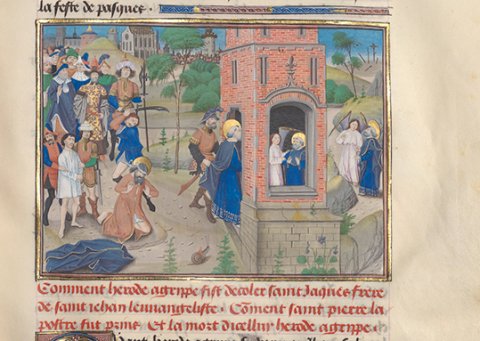 la feste de pasques.
Comment herode agrippe fist decoler saint Jaques frere
de saint iehan leuuangeliste. Coment saint pierre la
postre fut prins. Et la mort dicelluy herode agrippe.